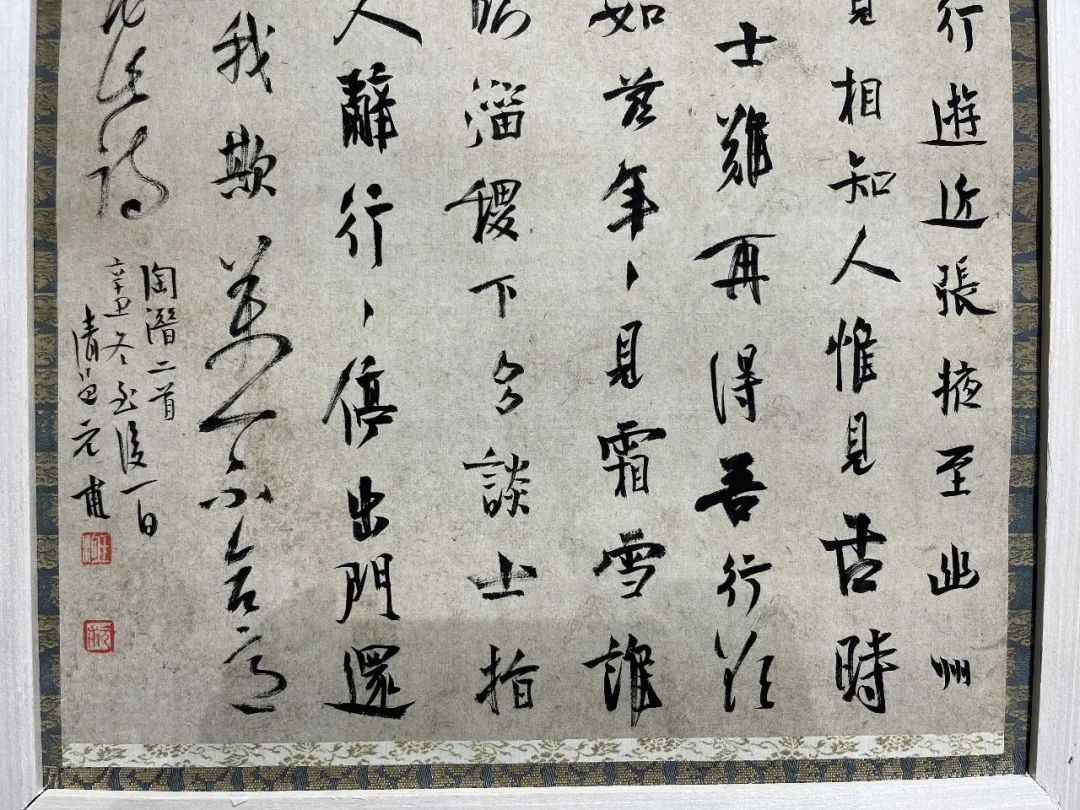 行遊近張掖至幽州
見相知人惟見古時
士難再得吾行欲
如茲年、見霜雪誰
臨淄稷下多談士指
人辭行、停出門還
我欺萬一不合意
此詩
陶潛二首
辛丑冬至後一日
清 元甫